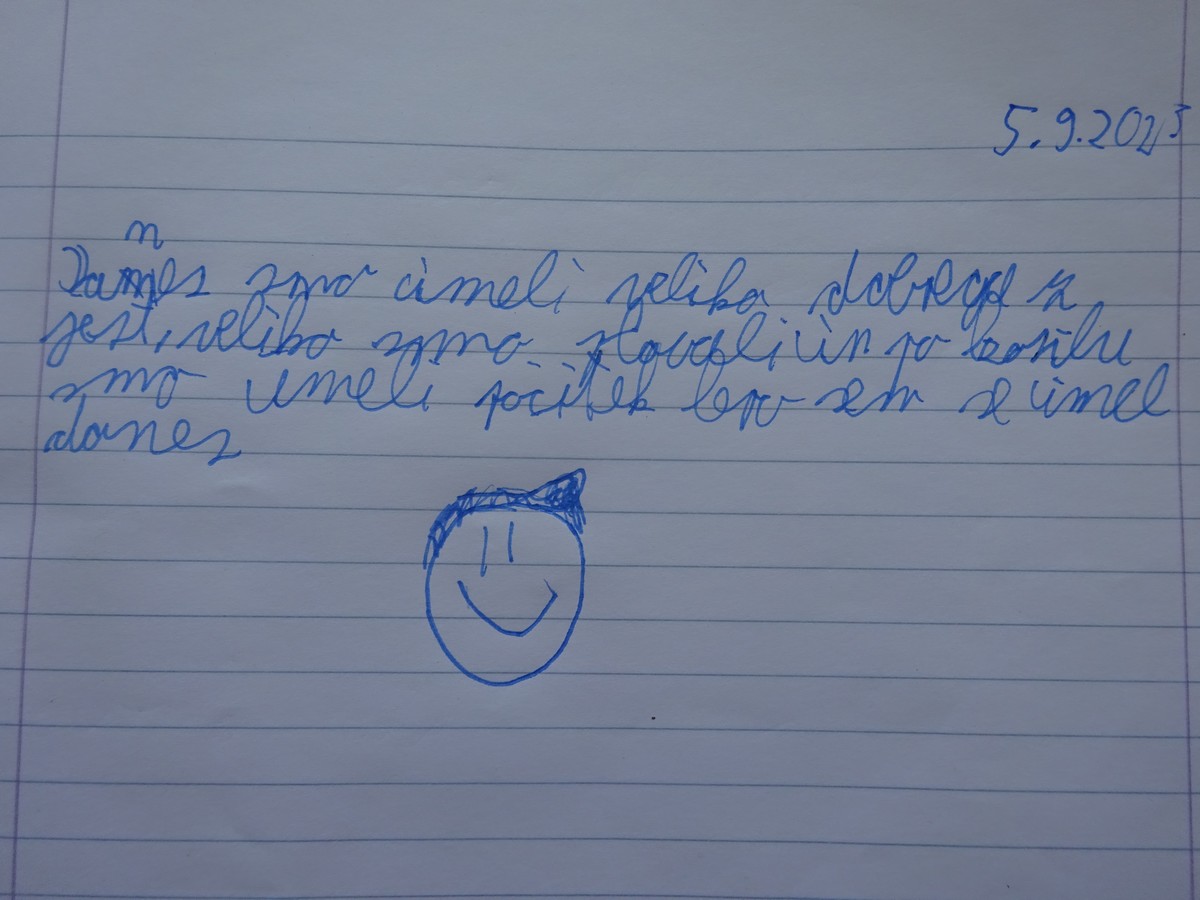 5.9.2023
n
Danes smo imeli veliko dobrega za
jest, veliko smo plavali in po kosilu
smo imeli počitek lepo sem se imel
danes